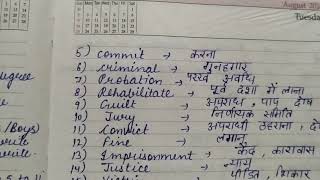 August 20
Tuesda
5) commit → करना
6) criminal → गुनहगार
7) Probation → परख अवधि
8) Rehabilitate → पूर्व दशा में लाना
9) Guilt → अपराध, पाप दोष
10) Jury → निर्णायक समिति
11) Convict → अपराधी ठहराना, दो
12) Fine → लगान
13) Imprisonment → कैद, कारावास
14) Justice → न्याय
15) Victim → पीड़ित, शिकार
egree
/Boys)